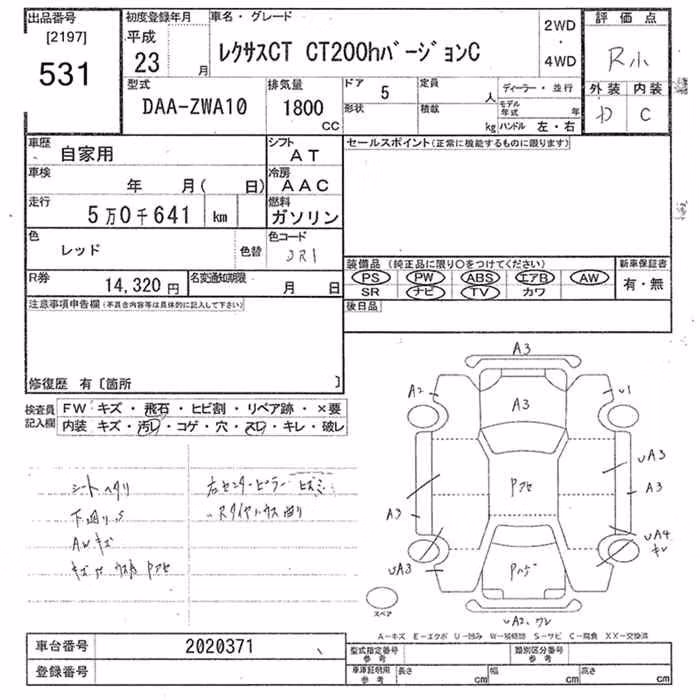 出品番号
[2197]
531
初度登録年月
平成
23 月
車名・グレード
レクサスCT CT200hバージョンC
2WD
・
4WD
評価点
R小
外装 内装
D C
型式
DAA-ZWA10
排気量
1800
CC
ドア 5
形状
定員 人
積載 kg
ディーラー・並行
モデル年式 年
ハンドル 左・右
車歴
自家用
シフト
AT
車検
年 月( 日)
冷房
AAC
走行
5万0千641 km
燃料
ガソリン
色
レッド
色替
色コード
3R1
セールスポイント(正常に機能するものに限ります)
装備品 (純正品に限り○をつけてください)
PS PW ABS エアB AW
SR ナビ TV カワ
新車保証書
有・無
R券
14,320 円
名変通知期限
月 日
後日品
注意事項申告欄(不具合内容等は具体的に記入して下さい)
修復歴 有〔箇所 〕
検査員記入欄
FW キズ・飛石・ヒビ割・リペア跡・×要
内装 キズ・汚レ・コゲ・穴・スレ・キレ・破レ
シートヘタリ
下廻りS
AWキズ
右センターピラー
A3
A2
A3
U1
UA3
A3
Pアセ
A3
UA4
キレ
UA3
Pハゲ
UA2、ワレ
スペア
A-キズ E-エクボ U-凹み W-補修跡 S-サビ C-腐食 XX-交換済
車台番号
2020371
登録番号
型式指定番号
参考
類別区分番号
参考
車庫証明用
参考
長さ cm
幅 cm
高さ cm